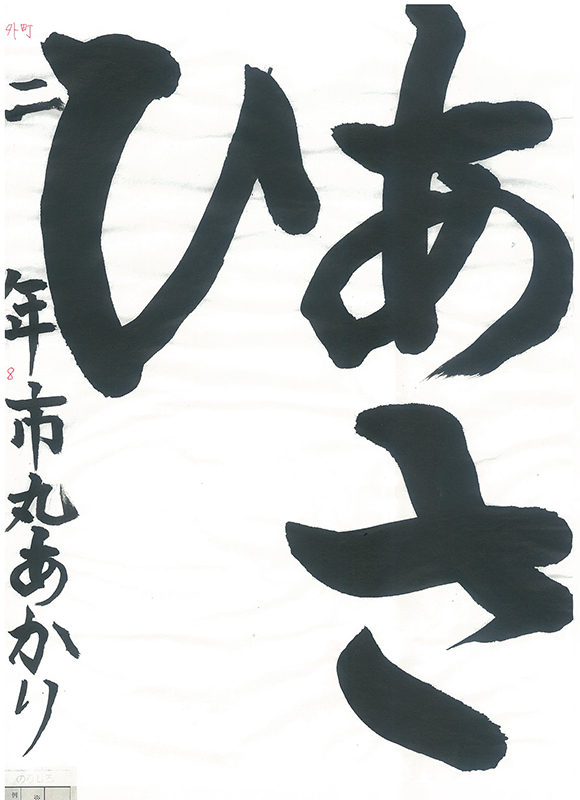 あさ
ひ
二年市丸あかり
外町
8
のりしろ